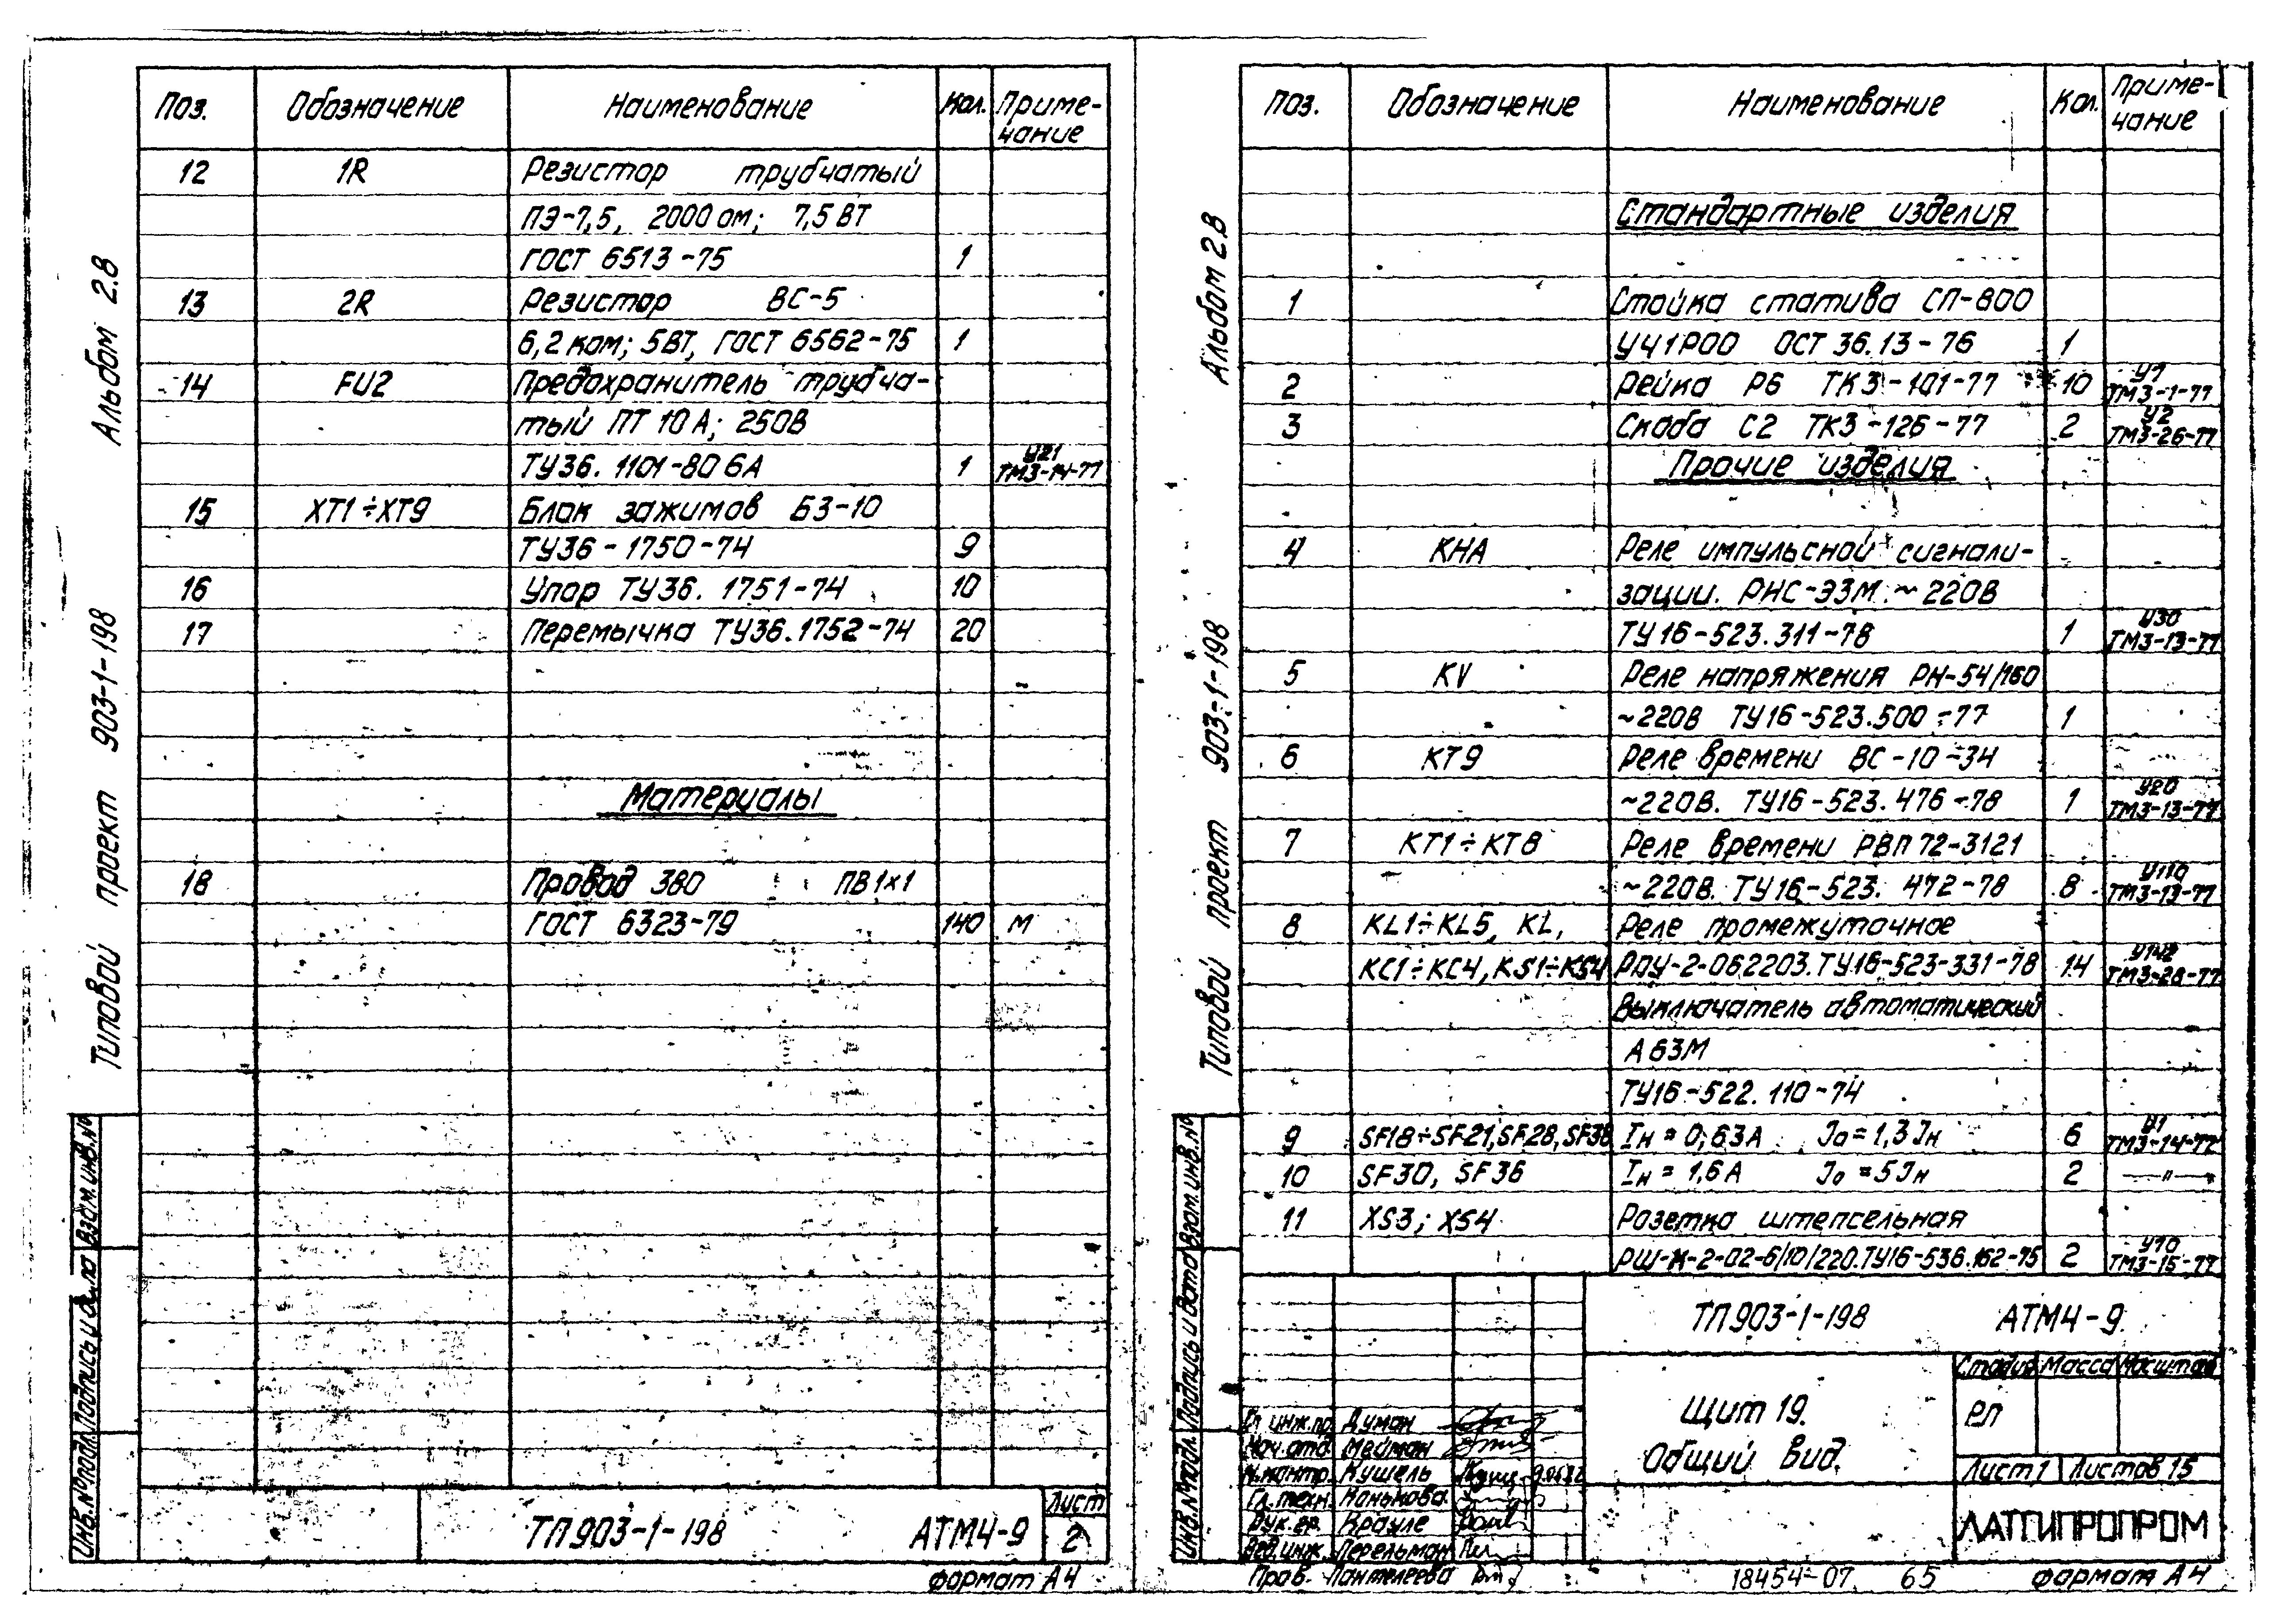 Поз. Обозначение Наименование Кол. Приме-
чание
12 1R Резистор трубчатый
ПЭ-7,5, 2000 ом; 7,5 ВТ
ГОСТ 6513-75 1
13 2R Резистор ВС-5
6,2 ком; 5ВТ, ГОСТ 6562-75 1
14 FU2 Предохранитель трубча-
тый ПТ 10А; 250В
ТУ36. 1101-80 6А 1 У21
ТМ3-14-77
15 XT1÷XT9 Блок зажимов БЗ-10
ТУ36-1750-74 9
16 Упор ТУ36. 1751-74 10
17 Перемычка ТУ36.1752-74 20
Материалы
18 Провод 380 ПВ1х1
ГОСТ 6323-79 140 м
ТП903-1-198 АТМ4-9 Лист
2
формат А4
Альбом 2.8
Типовой проект 903-1-198
Взам.инв.№
Подпись и дата
Инв.№подл.
Поз. Обозначение Наименование Кол. Приме-
чание
Стандартные изделия
1 Стойка статива СП-800
УЧ1Р00 ОСТ 36.13-76 1
2 Рейка Р6 ТК3-101-77 10 У7
ТМ3-1-77
3 Скоба С2 ТК3-126-77 2 У2
ТМ3-26-77
Прочие изделия
4 КНА Реле импульсной сигнали-
зации. РИС-Э3М ~220В
ТУ16-523.311-78 1 У30
ТМ3-13-77
5 KV Реле напряжения РН-54/160
~220В ТУ16-523.500-77 1
6 КТ9 Реле времени ВС-10-34
~220В. ТУ16-523.476-78 1 У20
ТМ3-13-77
7 КТ1÷КТ8 Реле времени РВП72-3121
~220В. ТУ16-523. 472-78 8 У110
ТМ3-13-77
8 KL1÷KL5, KL, Реле промежуточное
KC1÷KC4, KS1÷KS4 РПУ-2-062203.ТУ16-523-331-78 14 У142
ТМ3-28-77
Выключатель автоматический
А63М
ТУ16-522.110-74
9 SF18÷SF21,SF28,SF38 Iн=0,63А Jо=1,3Jн 6 У1
ТМ3-14-77
10 SF30, SF36 Iн=1,6А Jо=5Jн 2 —"—
11 XS3; XS4 Розетка штепсельная
РШ-К-2-02-6/10/220.ТУ16-536.162-75 2 У10
ТМ3-15-77
ТП903-1-198 АТМ4-9
Щит 19.
Общий вид.
Стадия Масса Масштаб
РП
Лист 1 Листов 15
ЛАТГИПРОПРОМ
Гл.инж.пр. Думан
Нач.отд. Мейман
Н.контр. Кушель
Гл.техн. Конькова
Рук.гр. Крауле
Вед.инж. Перельман
Пров. Пантелеева
18454-07 65 формат А4
Альбом 2.8
Типовой проект 903-1-198
Взам.инв.№
Подпись и дата
Инв.№подл.